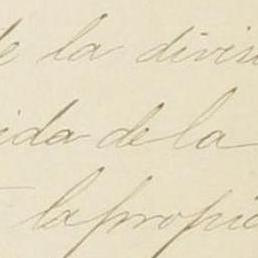 de la divis
ida de la
la propie